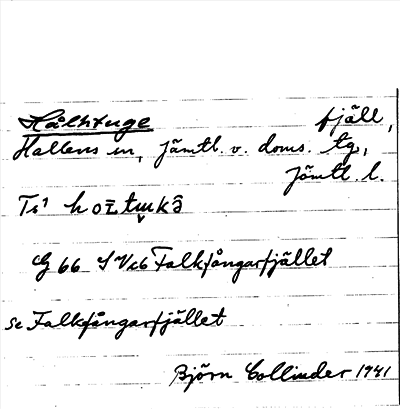 Hålhtuge fjäll,
Hallens sn, Jämtl. v. doms. tg,
Jämtl. l.
Ti¹
G 66 SVcb Falkfångarfjället
se Falkfångarfjället
Björn Collinder 1941